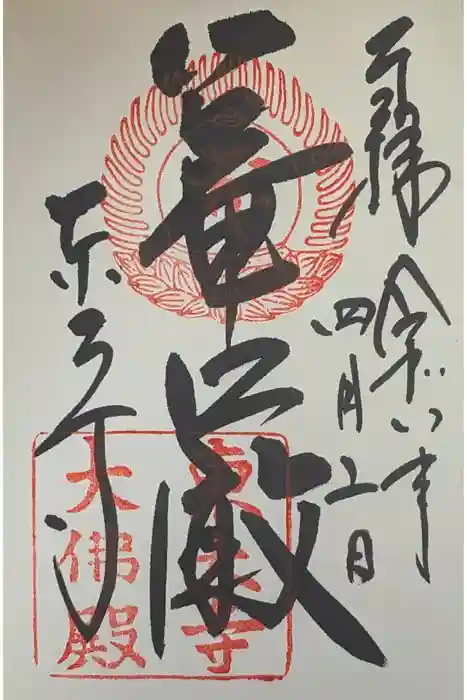 奉拝
令和
年
四月
日
華嚴
東大寺
東大寺
大佛殿